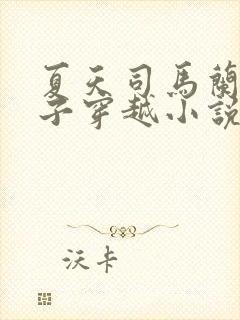 夏天司馬蘭
子穿越小說
沃卡